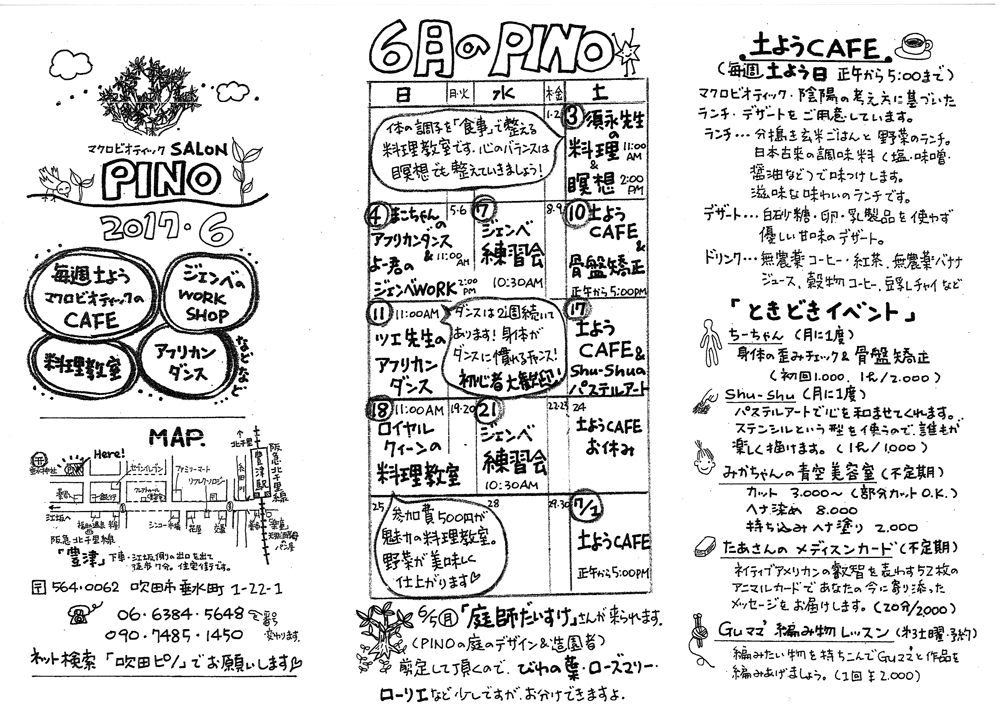 マクロビオティック SALON
PINO
2017・6
毎週土よう
マクロビオティックの
CAFE
ジェンベの
WORK
SHOP
料理教室
アフリカン
ダンス
などなど
MAP.
Here!
セブンイレブン
ファミリーマート
北千里
豊津駅
阪急北千里線
江坂へ
阪急北千里線
「豊津」下車・江坂側の出口を出て
徒歩7分。住宅街です。
〒564-0062 吹田市垂水町 1-22-1
☎ 06・6384・5648
090・7485・1450
番号変わります。
ネット検索「吹田ピノ」でお願いします♡
6月のPINO
日 月・火 水 木・金 土
体の調子を「食事」で整える
料理教室です。心のバランスは
瞑想でも整えていきましょう!
1・2
③ 須永先生
の
料理 11:00AM
&
瞑想 2:00PM
④ まこちゃんの
アフリカンダンス
& 11:00AM
よー君の
ジェンベWORK 2:00PM
5・6
⑦
ジェンベ
練習会
10:30AM
8・9
⑩ 土よう
CAFE
&
骨盤矯正
正午から5:00PM
⑪ 11:00AM
ツェ先生の
アフリカン
ダンス
ダンスは2週続いて
あります!身体が
ダンスに慣れるチャンス!
初心者大歓迎!!
⑰
土よう
CAFE&
Shu-Shuの
パステルアート
⑱ 11:00AM
ロイヤル
クィーンの
料理教室
19・20
㉑
ジェンベ
練習会
10:30AM
22・23
24
土ようCAFE
お休み
25
参加費500円が
魅力の料理教室。
野菜が美味しく
仕上がります♡
28
29・30
7/1
土ようCAFE
正午から5:00PM
6/5(月)「庭師だいすけ」さんが来られます。
(PINOの庭のデザイン&造園者)
剪定して頂くので、びわの葉・ローズマリー・
ローリエなど少しですが、お分けできますよ。
土ようCAFE
(毎週土よう日 正午から5:00まで)
マクロビオティック・陰陽の考え方に基づいた
ランチ・デザートをご用意しています。
ランチ…分搗き玄米ごはんと野菜のランチ。
日本古来の調味料(塩・味噌・
醤油など)で味つけします。
滋味な味わいのランチです。
デザート…白砂糖・卵・乳製品を使わず
優しい甘味のデザート。
ドリンク…無農薬コーヒー・紅茶、無農薬バナナ
ジュース、穀物コーヒー、豆乳チャイなど
「ときどきイベント」
ちーちゃん (月に1度)
身体の歪みチェック&骨盤矯正
(初回1.000、1h/2.000)
Shu-Shu (月に1度)
パステルアートで心を和ませてくれます。
ステンシルという型を使うので、誰もが
楽しく描けます。(1h/1,000)
みかちゃんの青空美容室(不定期)
カット 3.000～(部分カットO.K.)
ヘナ染め 8.000
持ち込みヘナ塗り 2.000
たあさんのメディスンカード(不定期)
ネイティブアメリカンの叡智を表わす52枚の
アニマルカードであなたの今に寄り添った
メッセージをお届けします。(20分/2000)
Guママ 編み物レッスン(水土曜・予約)
編みたい物を持ちこんでGuママと作品を
編みあげましょう。(1回¥2.000)